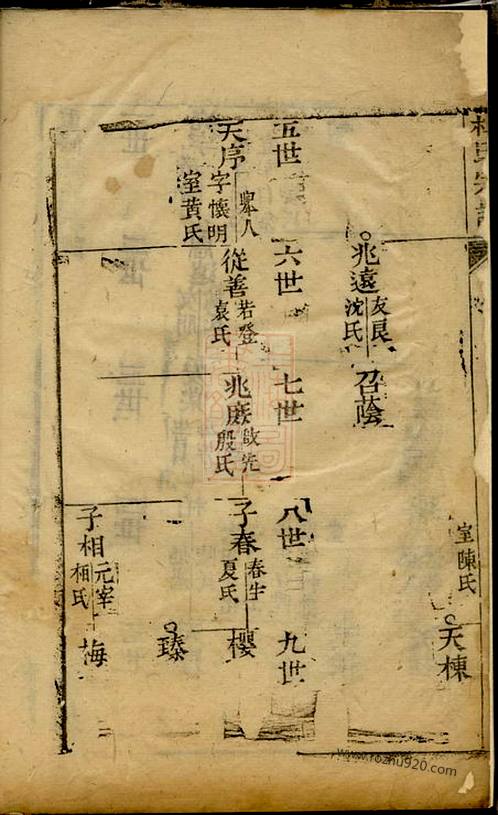 室陳氏
天棟
兆遠
友良
沈氏
召蔭
五世
六世
七世
八世
九世
天序
舉人
字懷明
室黃氏
從善
若登
袁氏
兆
啟先
殷氏
子春
春生
夏氏
櫻
臻
子相
元宰
相氏
梅
www.rozhu920.com